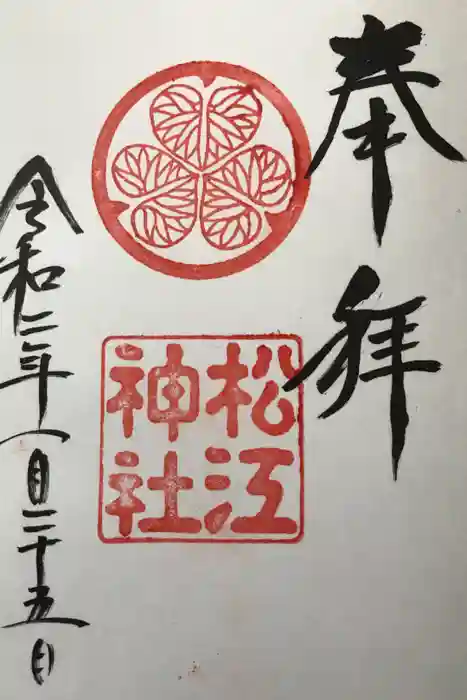 奉拝
松江
神社
令和二年一月二十五日